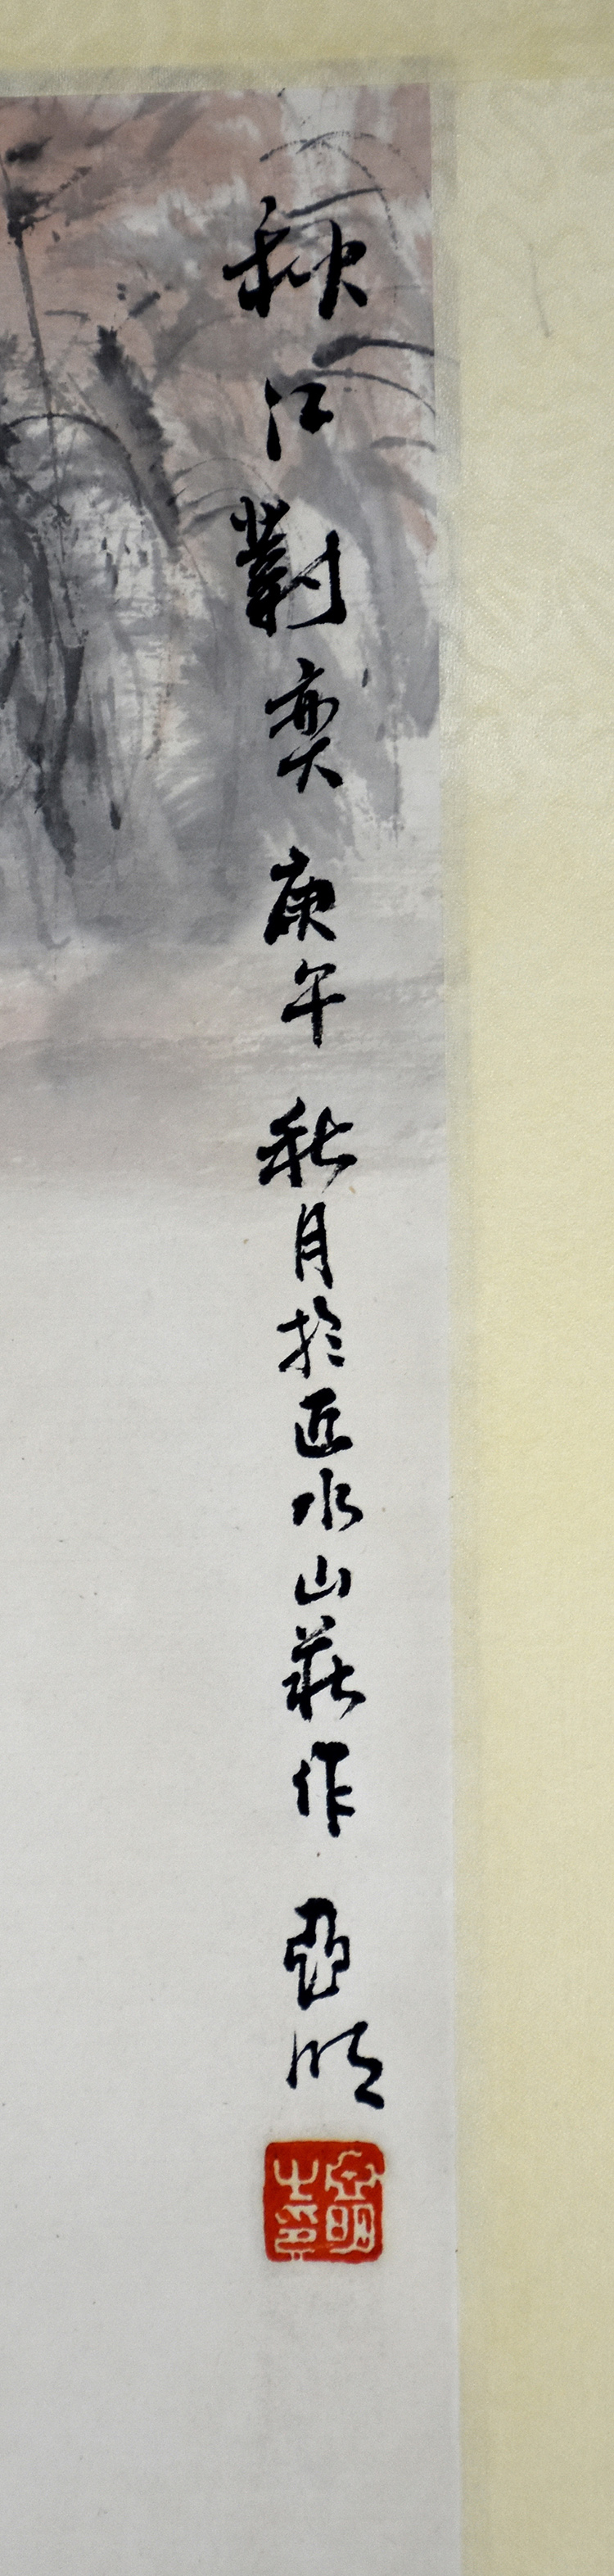 秋江對奕 庚午 秋月於近水山莊作 亞明
亞明之印